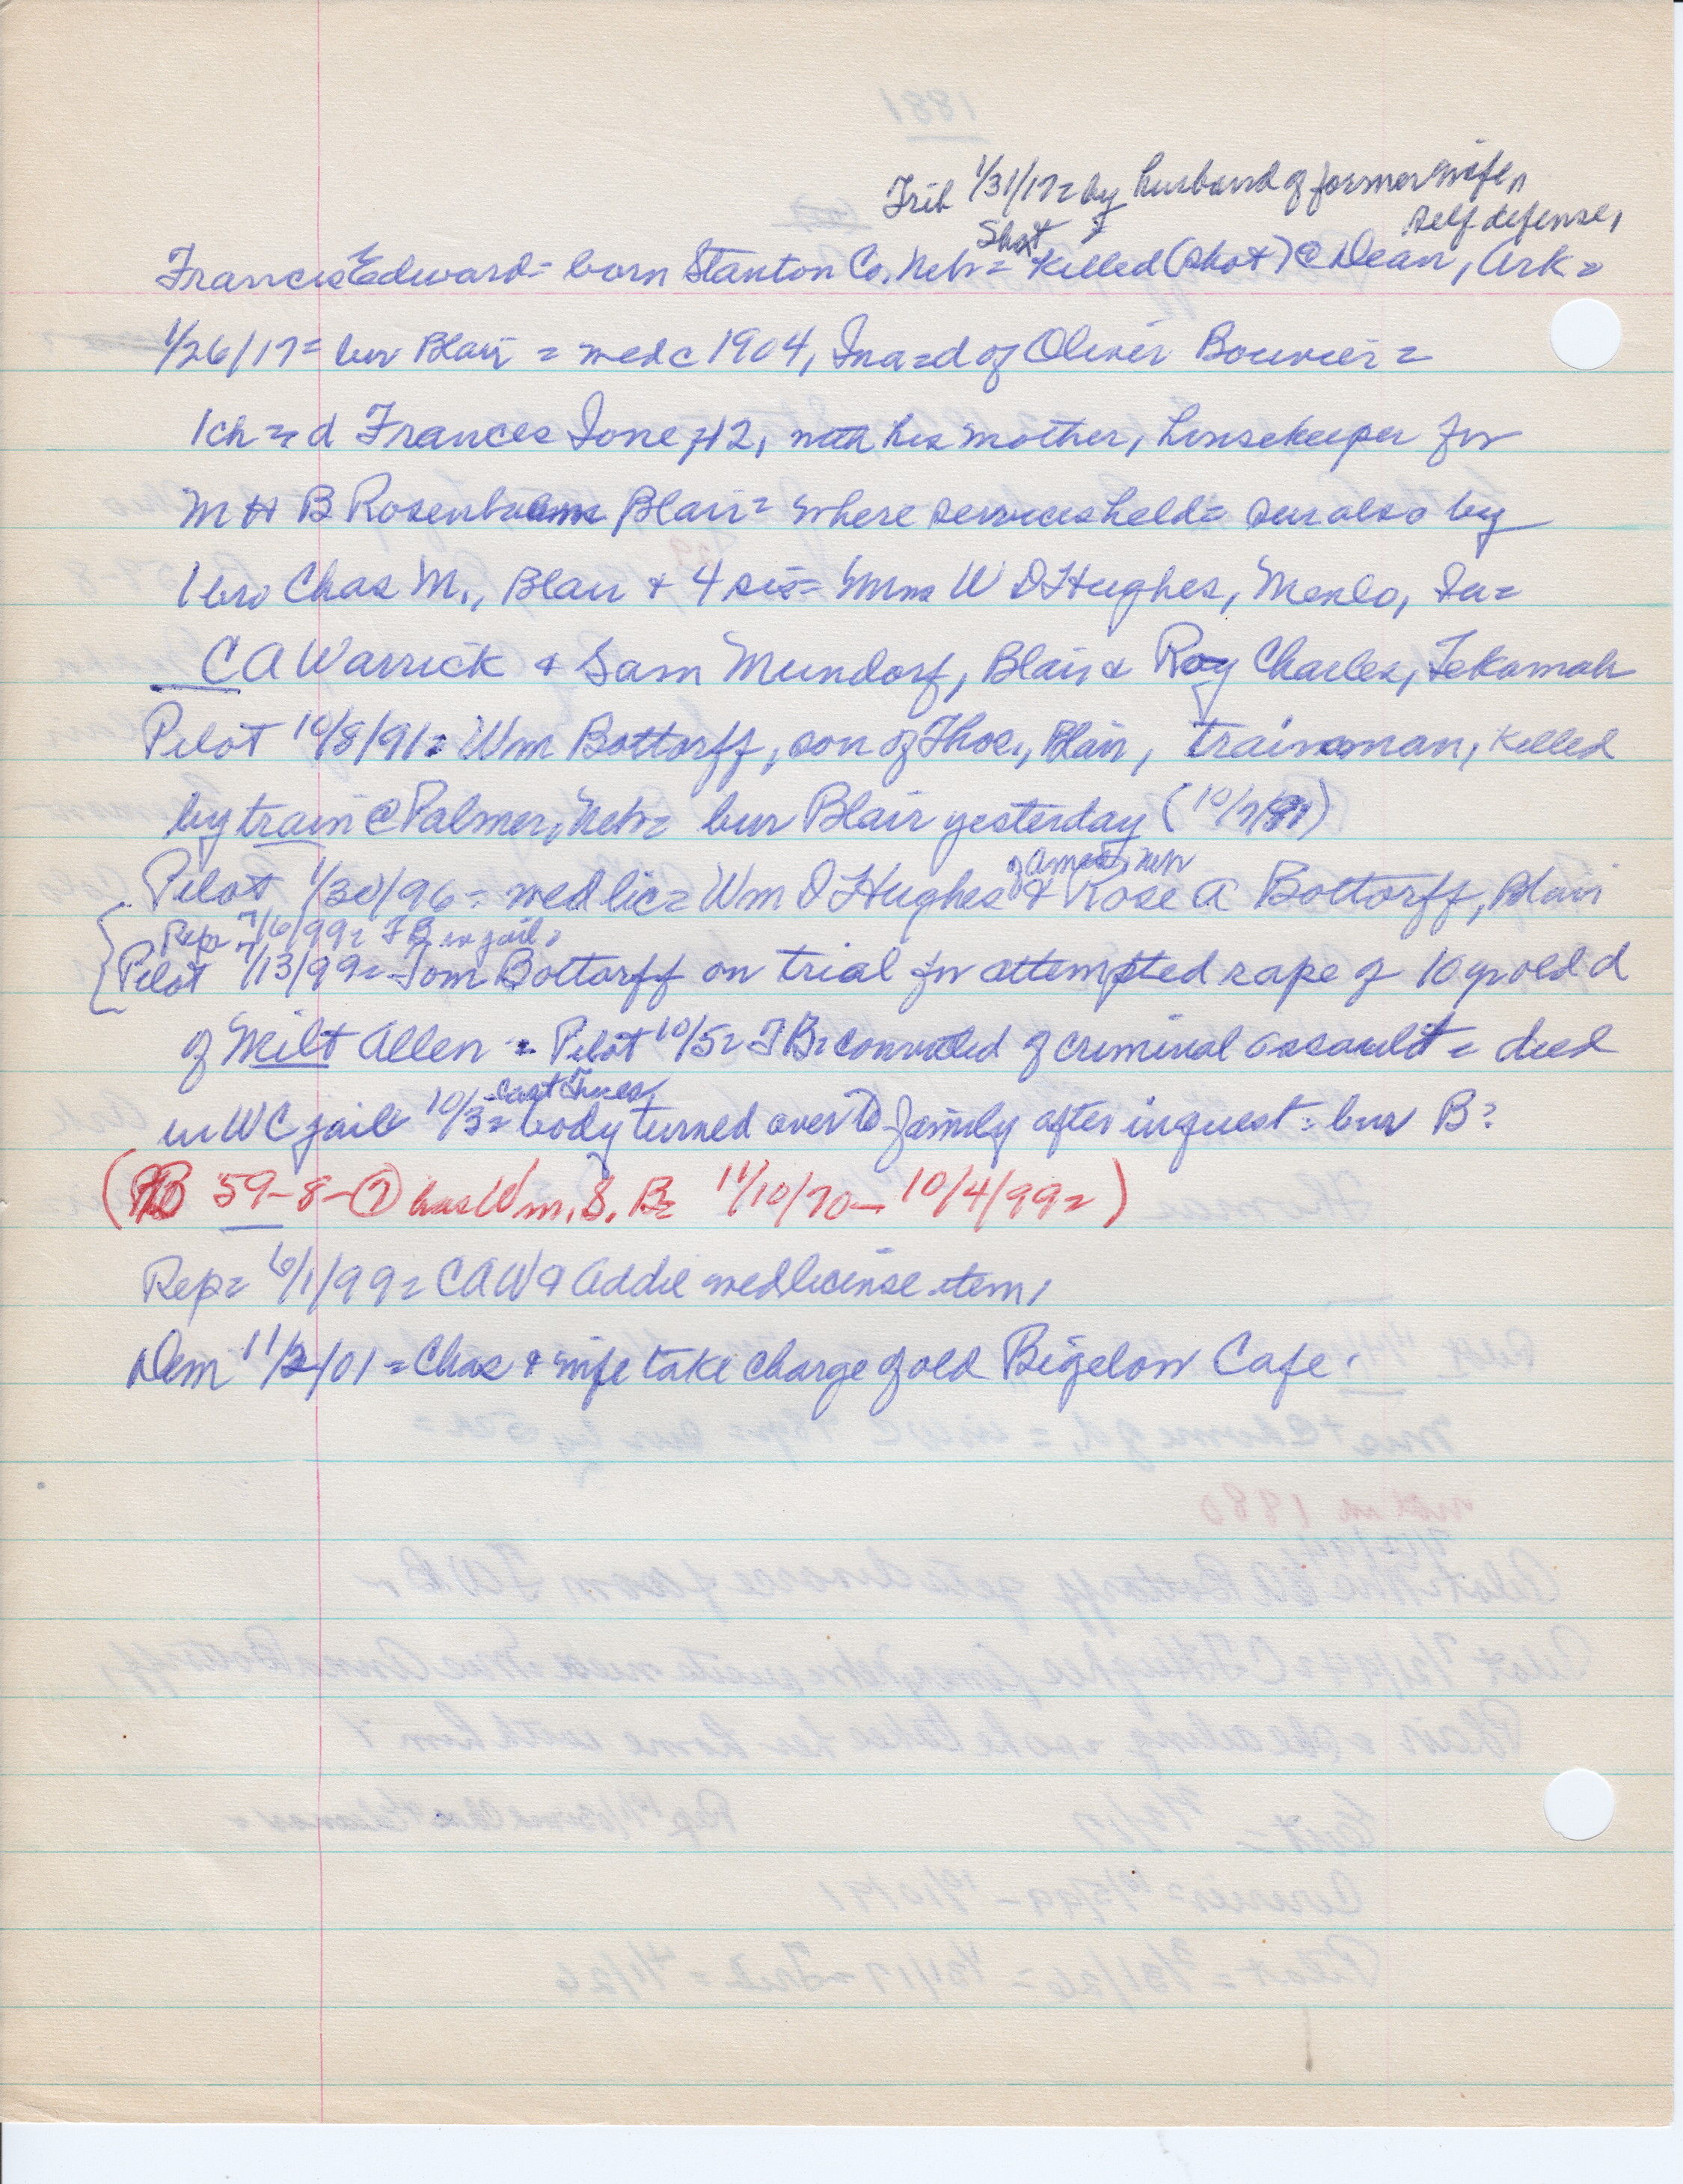 Trib 1/31/17= by husband of former wife,
Shot self defense,
Francis Edward= born Stanton Co. Neb= Killed (shot) @ Dean, Ark=
1/26/17= bur Blair = wed c 1904, Ina=d of Oliver Bouvier=
1 ch = d Frances Ione 12, with his mother, housekeeper for
M H B Rosenbaum Blair= where services held= sur also by
1 bro Chas M., Blair + 4 sis= Mmes W D Hughes, Menlo, Ia=
C A Warrick & Sam Mundorf, Blair & Roy Charles, Tekamah
Pilot 10/8/91= Wm Bottorff, son of Thos., Blair, trainman, killed
by train @ Palmer, Neb= bur Blair yesterday (10/7/91)
of Ames, Neb
Pilot 1/30/96= wed lic= Wm D Hughes & Rose A Bottorff, Blair
Rep= 7/6/99= T B in jail,
Pilot 7/13/99= Tom Bottorff on trial for attempted rape of 10 yr old d
of Milt Allen = Pilot 10/5= T B= convicted of criminal assault = died
in WC jail 10/3= body turned over to family after inquest= bur B=
( 59-8-(7) has Wm. S. B= 11/10/70 – 10/4/99= )
Rep= 6/1/99= CAW & Addie wed license item,
Dem 11/2/01= Chas & wife take charge of old Bigelow Cafe.